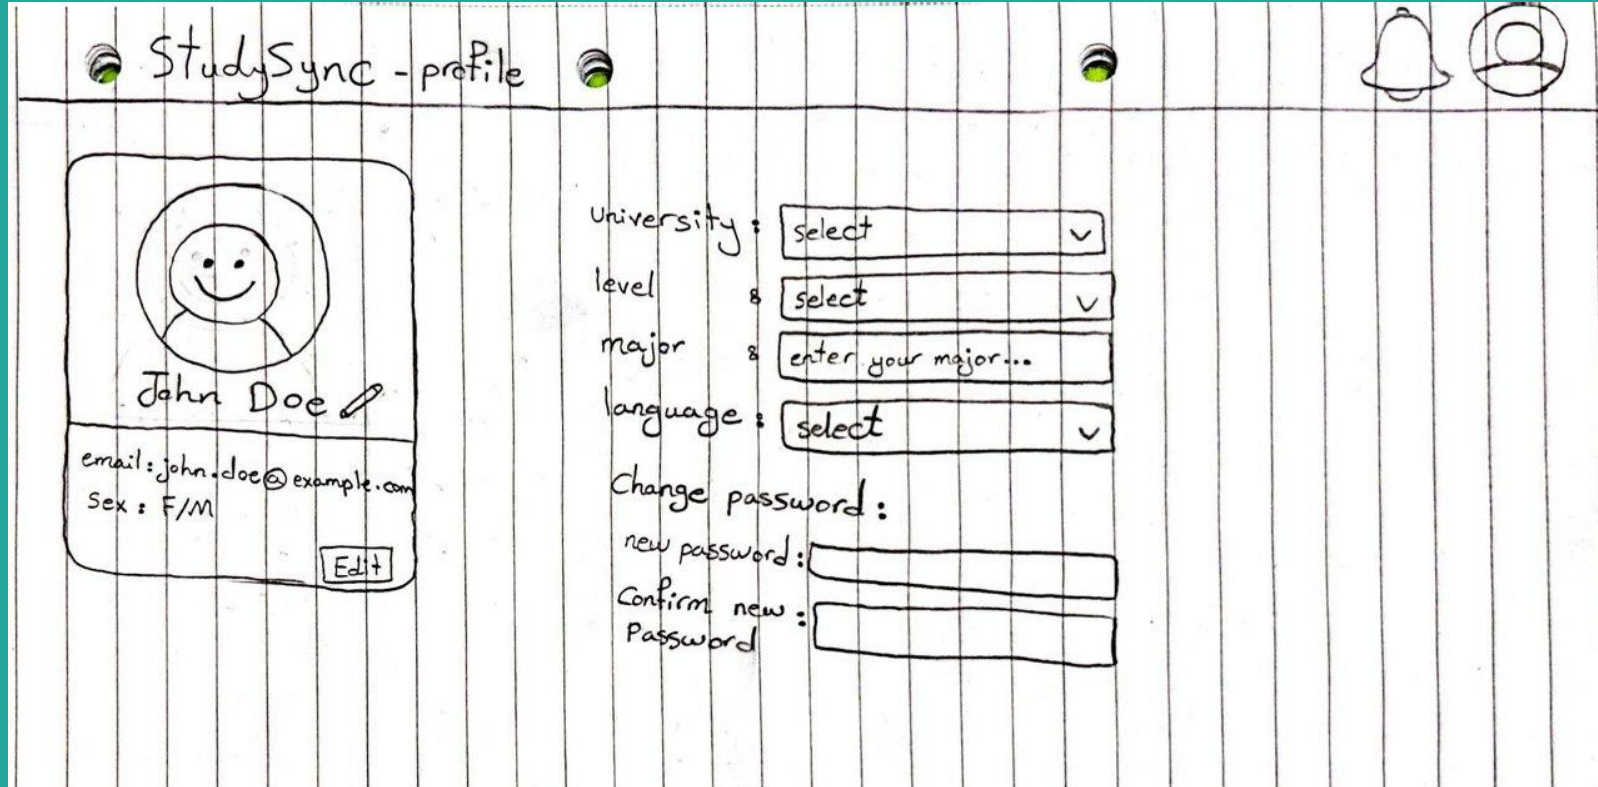 StudySync - profile
John Doe
email: john.doe@example.com
Sex: F/M
Edit
university: select
level : select
major : enter your major...
language: select
Change password:
new password:
Confirm new :
Password